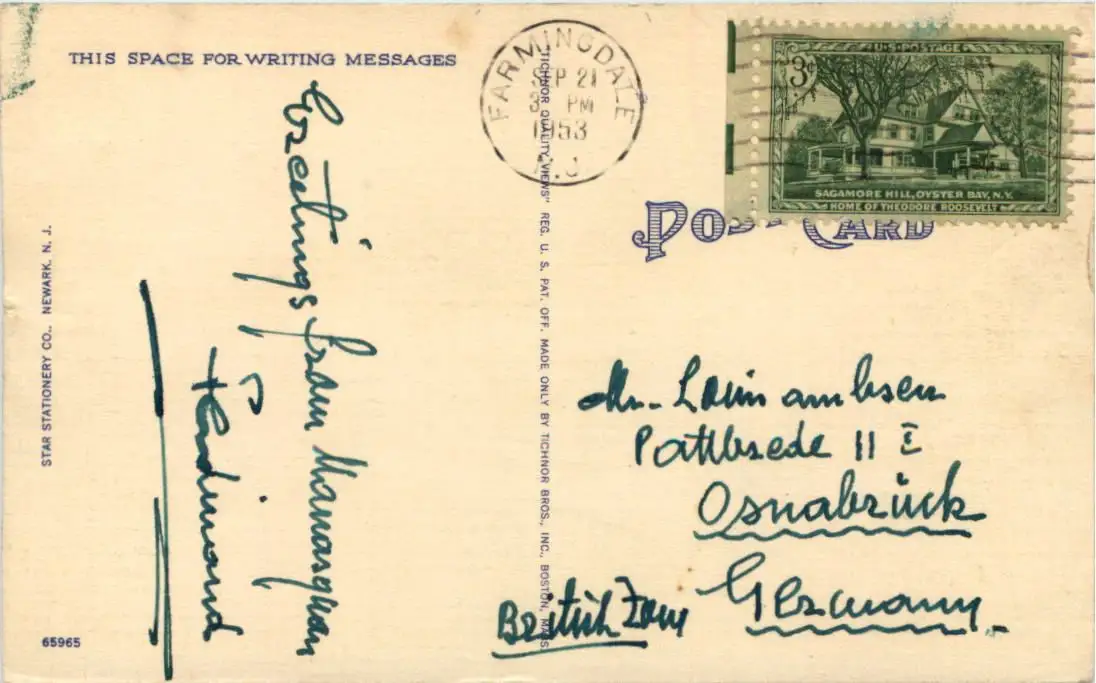 THIS SPACE FOR WRITING MESSAGES
Greetings from Manasquan
Ferdinand
STAR STATIONERY CO., NEWARK, N. J.
65965
"TICHNOR QUALITY VIEWS" REG. U. S. PAT. OFF. MADE ONLY BY TICHNOR BROS., INC., BOSTON, MASS
FARMINGDALE
SEP 21
3 PM
1953
N.J
U.S. POSTAGE
3¢
SAGAMORE HILL, OYSTER BAY, N.Y.
HOME OF THEODORE ROOSEVELT
POST CARD
Osnabrück
Germany
British Zone